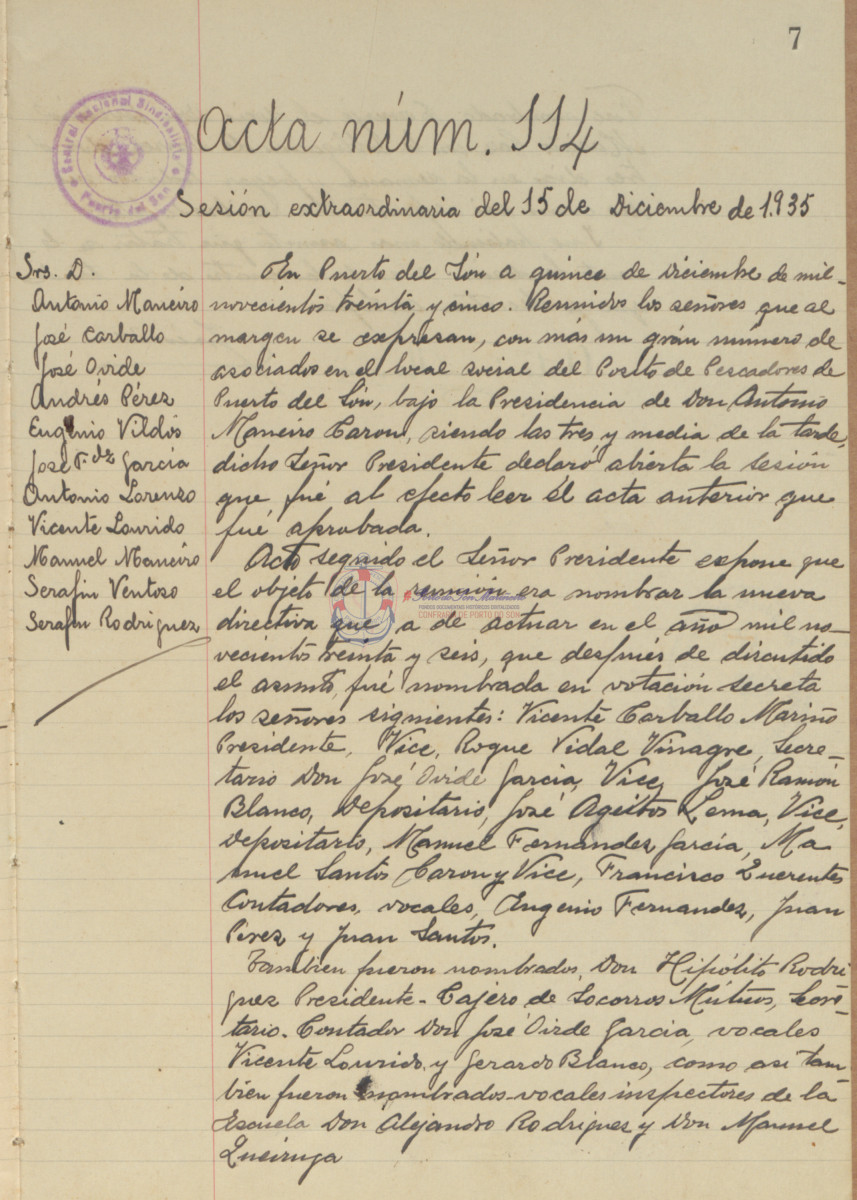 7
Central Nacional Sindicalista
Puerto del Son
Acta núm. 114
Sesión extraordinaria del 15 de Diciembre de 1.935
Srs. D.
Antonio Maneiro
José Carballo
José Ovide
Andrés Pérez
Eugenio Vildós
José F.dz García
Antonio Lorenzo
Vicente Lourido
Manuel Maneiro
Serafin Ventoso
Serafin Rodriguez
En Puerto del Són a quince de Diciembre de mil-
novecientos treinta y cinco. Reunidos los señores que al
margen se expresan, con más un grán número de
asociados en el local social del Posito de Pescadores de
Puerto del Són, bajo la Presidencia de Don Antonio
Maneiro Caron, siendo las tres y media de la tarde,
dicho Señor Presidente declaró abierta la sesión
que fué al efecto leer él acta anterior que
fué aprobada.
Acto seguido el Señor Presidente expone que
el objeto de la reunión era nombrar la nueva
directiva que, a de actuar en el año mil no-
vecientos treinta y seis, que después de discutido
el asunto, fué nombrada en votación secreta
los señores siguientes: Vicente Carballo Mariño
Presidente, Vice, Roque Vidal Vinagre, Secre-
tario Don José Ovide Garcia, Vice, José Ramón
Blanco, Depositario, José Ageitos Lema, Vice,
depositario, Manuel Fernandez García, Ma-
nuel Santos Caron y Vice, Francisco Querentes
Contadores, vocales, Eugenio Fernandez, Juan
Pérez y Juan Santos.
Tambien fueron nombrados, Don Hipólito Rodri-
guez Presidente-Cajero de Socorros Mútuos, Secre-
tario-Contador Don José Oirde Garcia, vocales
Vicente Lourido y Gerardo Blanco, como asi tam-
bien fueron nombrados vocales inspectores de la
Escuela Don Alejandro Rodriguez y Don Manuel
Queiruga
FONDOS DOCUMENTAIS HISTÓRICOS DIXITALIZADOS
CONFRARÍA DE PORTO DO SON